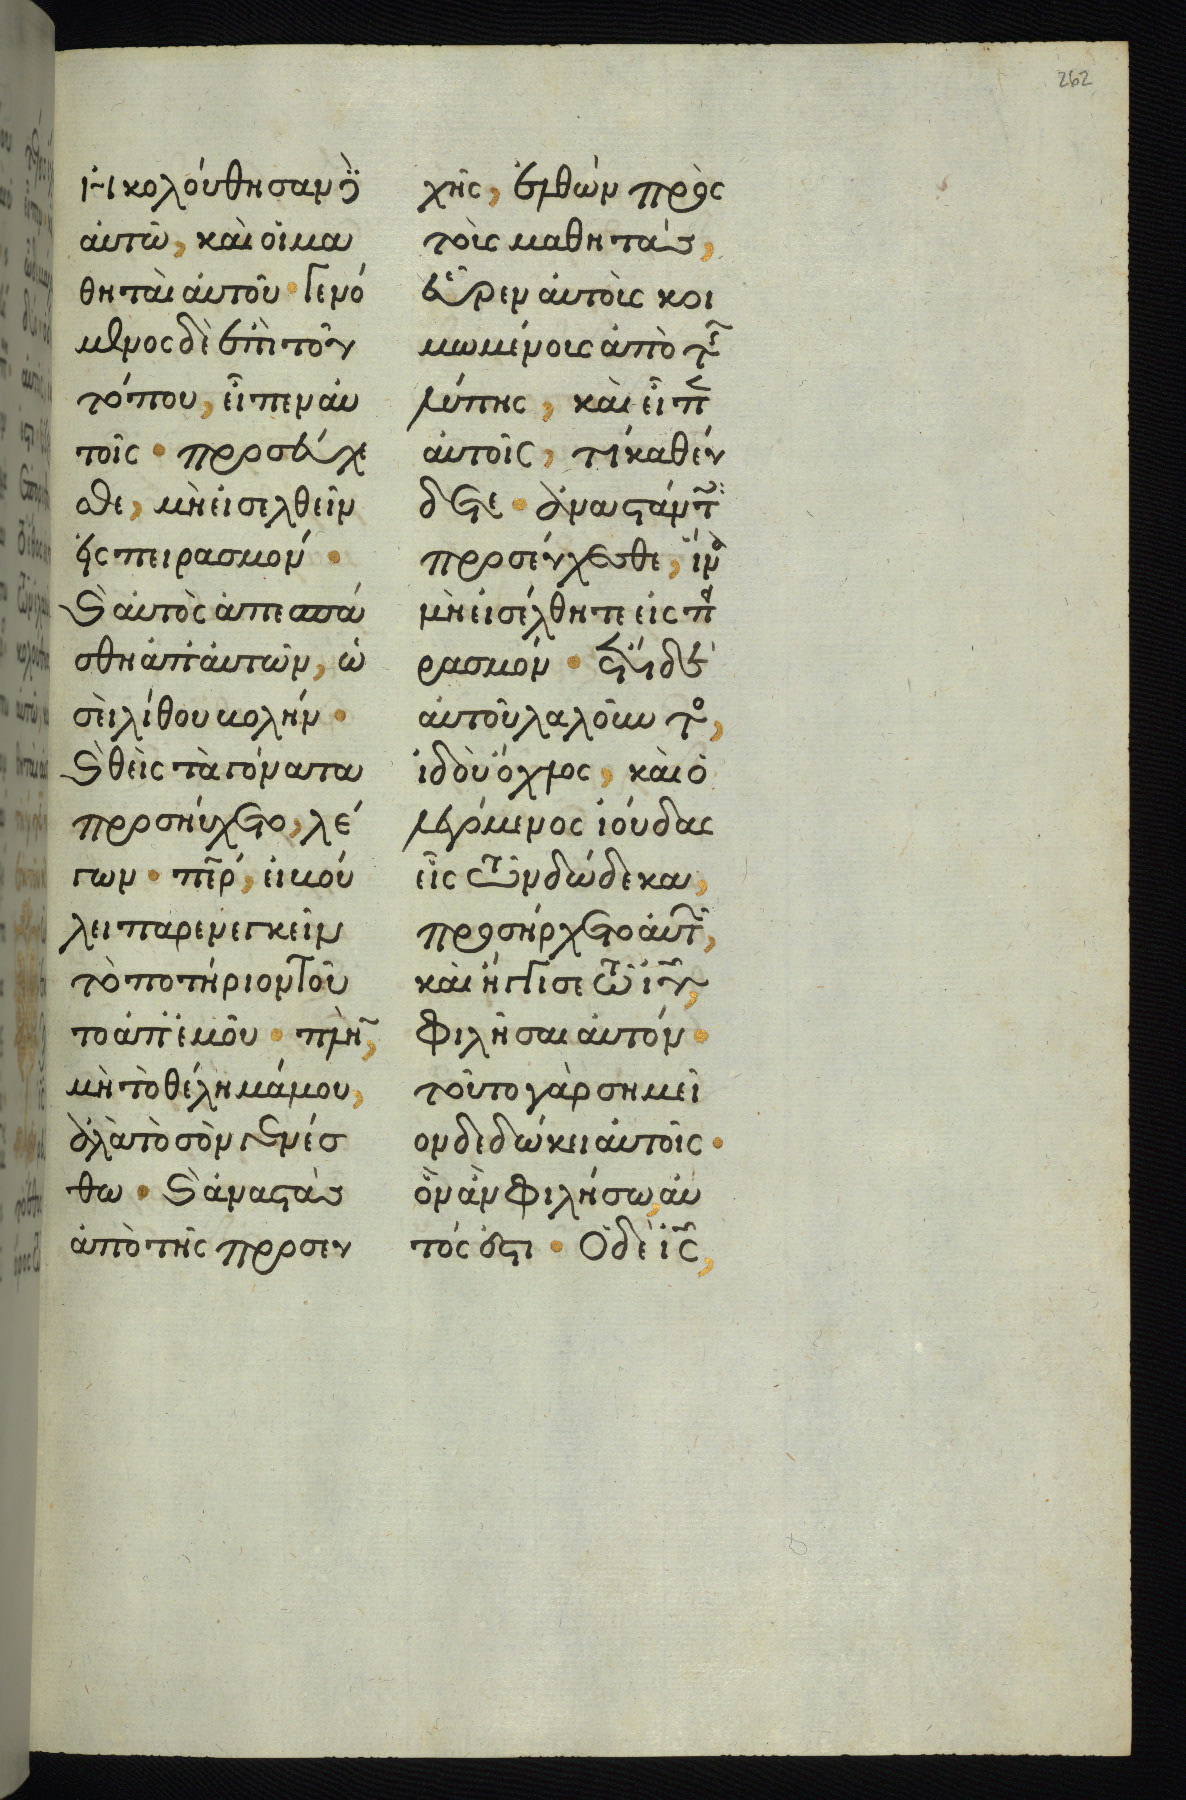 262
ἠκολούθησαν δὲ
αὐτῶ, καὶ οἱ μα
θηταὶ αὐτοῦ · Γενό
μενος δὲ ἐπὶ τοῦ
τόπου, εἶπεν αὐ
τοῖς · προσεύχε
σθε, μὴ εἰσελθεῖν
εἰς πειρασμόν ·
Καὶ αὐτὸς ἀπεσπά
σθη ἀπ' αὐτῶν, ὡ
σεὶ λίθου βολήν ·
Καὶ θεὶς τὰ γόνατα
προσηύχετο, λέ
γων · περ, εἰ βού
λει παρενεγκεῖν
τὸ ποτήριον τοῦ
το ἀπ' ἐμοῦ · πλὴν,
μὴ τὸ θέλημά μου,
ἀλλὰ τὸ σὸν γενέσ
θω · Καὶ ἀναστὰς
ἀπὸ τῆς προσευ
χῆς, ἐλθὼν πρὸς
τοὺς μαθητάς,
εὗρεν αὐτοὺς κοι
μωμένους ἀπὸ τῆς
λύπης, καὶ εἶπεν
αὐτοῖς, τί καθεύ
δετε · ἀναστάντες
προσεύχεσθε, ἵνα
μὴ εἰσέλθητε εἰς πει
ρασμόν · ἔτι δὲ
αὐτοῦ λαλοῦντος,
ἰδοὺ ὄχλος, καὶ ὁ
λεγόμενος ἰούδας
εἷς τῶν δώδεκα,
προσήρχετο αὐτοῖς,
καὶ ἤγγισε τῶ ιυ,
φιλῆσαι αὐτόν ·
τοῦτο γὰρ σημεῖ
ον δεδώκει αὐτοῖς ·
ὃν ἂν φιλήσω, αὐ
τός ἐστι · Ὁ δὲ ις,